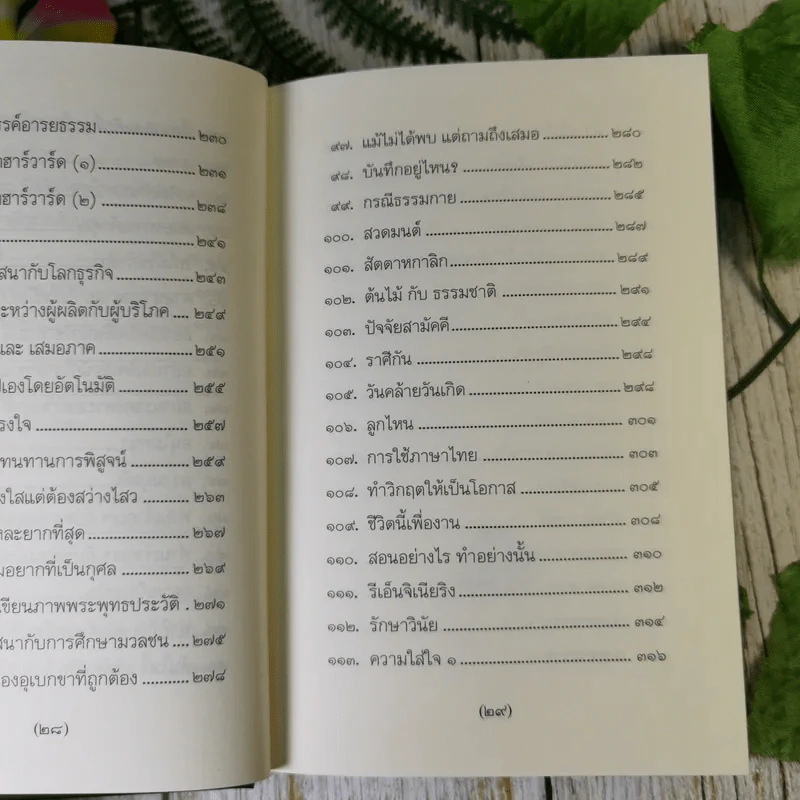 รรค์อารยธรรม................ ๒๓๐
ฮาร์วาร์ด (๑)................ ๒๓๑
ฮาร์วาร์ด (๒) ................ ๒๓๘
................ ๒๔๑
สนากับโลกธุรกิจ................ ๒๔๓
ะหว่างผู้ผลิตกับผู้บริโภค ........ ๒๔๙
และ เสมอภาค ................ ๒๕๑
ปเองโดยอัตโนมัติ ................ ๒๕๕
รงใจ ................ ๒๕๗
ทนทานการพิสูจน์ ................ ๒๕๙
งใสแต่ต้องสว่างไสว ........ ๒๖๓
และยากที่สุด................ ๒๖๗
มอยากที่เป็นกุศล ................ ๒๖๙
เขียนภาพพระพุทธประวัติ . ๒๗๑
สนากับการศึกษามวลชน ...... ๒๗๕
องอุเบกขาที่ถูกต้อง ............ ๒๗๘
(๒๘)
๙๗. แม้ไม่ได้พบ แต่ถามถึงเสมอ ................ ๒๘๐
๙๘. บันทึกอยู่ไหน? ................ ๒๘๒
๙๙. กรณีธรรมกาย ................ ๒๘๕
๑๐๐. สวดมนต์ ................ ๒๘๗
๑๐๑. สัตตาหกาลิก................ ๒๘๙
๑๐๒. ต้นไม้ กับ ธรรมชาติ ................ ๒๙๑
๑๐๓. ปัจจัยสามัคคี................ ๒๙๔
๑๐๔. ราศีกัน ................ ๒๙๘
๑๐๕. วันคล้ายวันเกิด ................ ๒๙๘
๑๐๖. ลูกไหน ................ ๓๐๑
๑๐๗. การใช้ภาษาไทย ................ ๓๐๓
๑๐๘. ทำวิกฤตให้เป็นโอกาส ................ ๓๐๕
๑๐๙. ชีวิตนี้เพื่องาน ................ ๓๐๘
๑๑๐. สอนอย่างไร ทำอย่างนั้น ................ ๓๑๐
๑๑๑. รีเอ็นจิเนียริง ................ ๓๑๒
๑๑๒. รักษาวินัย ................ ๓๑๔
๑๑๓. ความใส่ใจ ๑ ................ ๓๑๖
(๒๙)